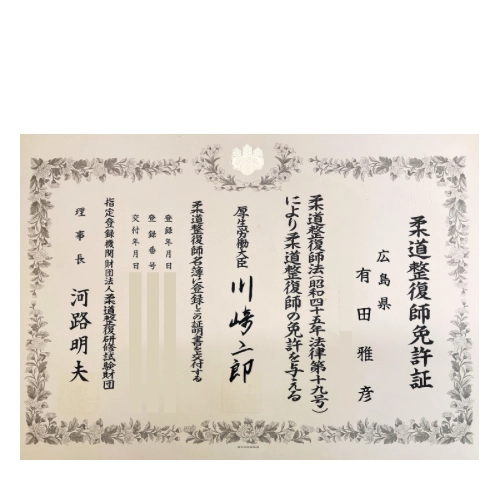 柔道整復師免許証
広島県
有田雅彦
柔道整復師法(昭和四十五年法律第十九号)
により柔道整復師の免許を与える
厚生労働大臣 川崎二郎
柔道整復師名簿に登録しこの証明書を交付する
登録年月日
登録番号
交付年月日
指定登録機関財団法人柔道整復研修試験財団
理事長 河路明夫